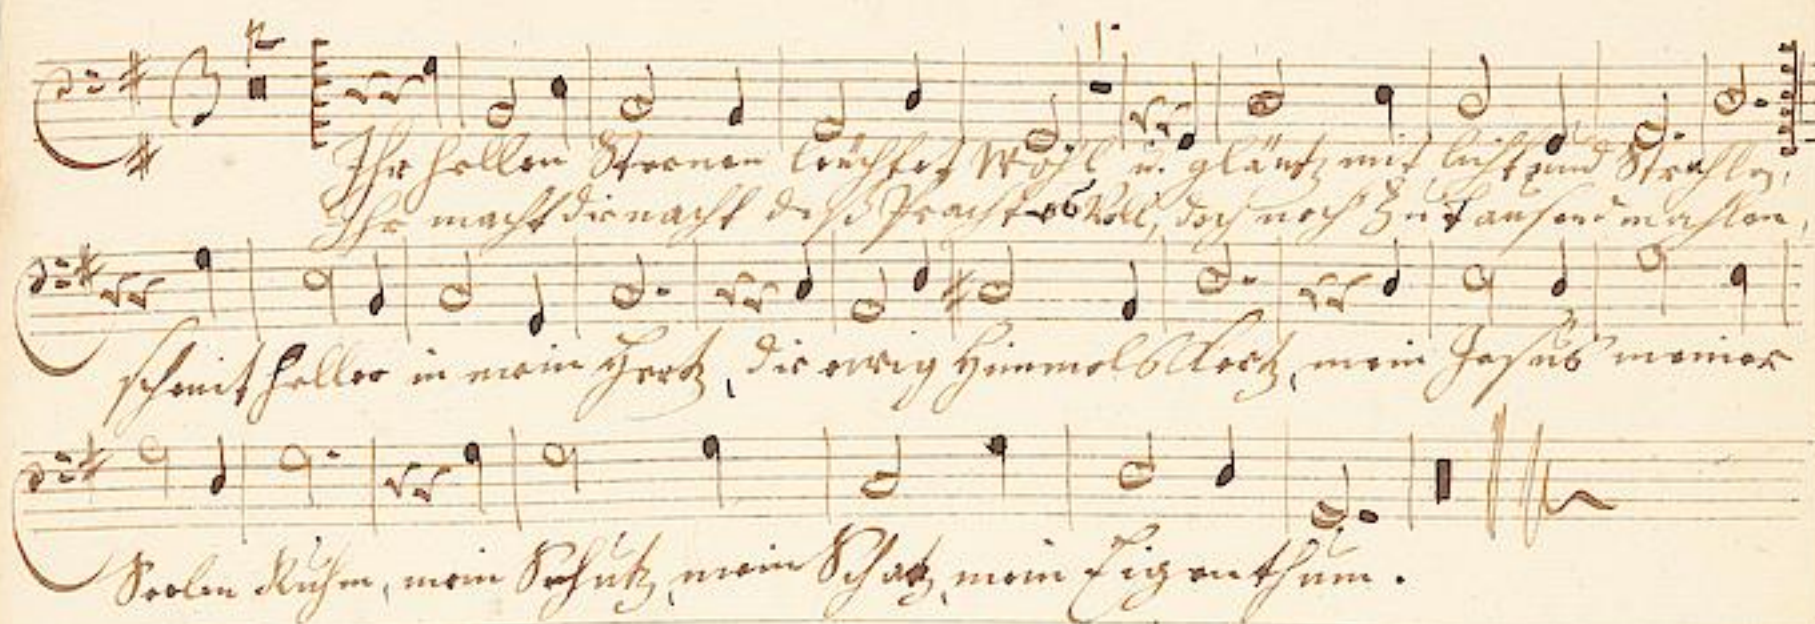 Ihr hellen Sternen leüchtet Wohl u. gläntz mit licht und Strahlen,
Ihr macht die nacht deß Pracht Voll, doch noch Zu tausend mahlen,
scheint heller in mein Hertz, die ewig Himmels Kertz, mein Jesus meiner
Seelen Ruhm, mein Schutz, mein Schatz, mein Eigenthum.